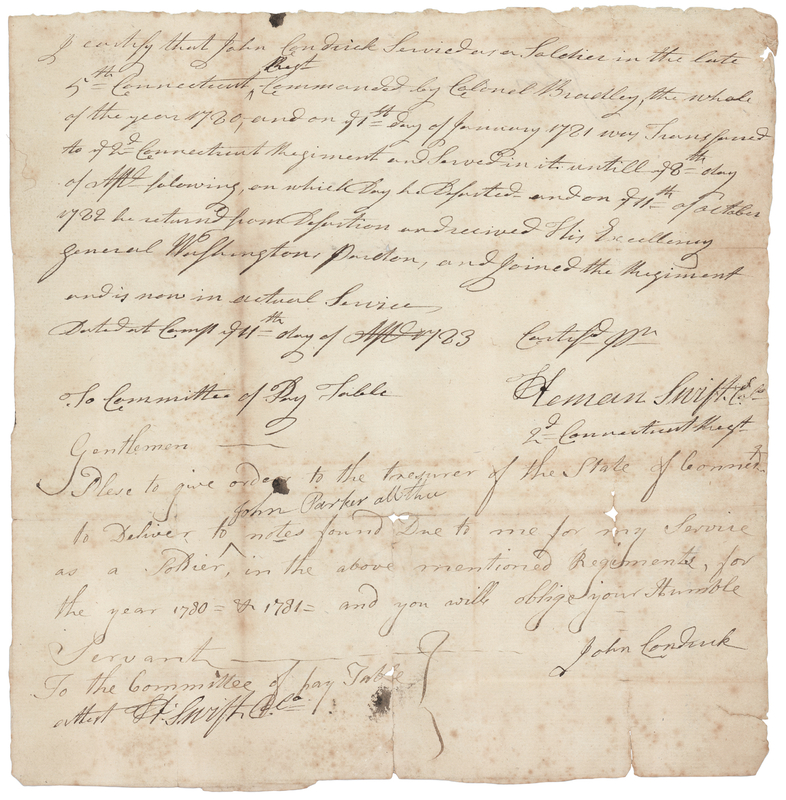 I certify that John Condrick Served as a Soldier in the late
Regt
5th Connecticut ^ Commanded by Colonel Bradley, the whole
of the year 1780, and on ye 1st day of January 1781 was Transfared
to ye 2d Connecticut Regiment and Served in it untill ye 8th day
of Apl folowing, on which Day he Deserted and on ye 11th of october
1782 he returnd from Desertion and recived His Excellency
general Washingtons Pardon, and Joined the Regiment
and is now in actual Service
Dated at Camp ye 11th day of Apl 1783 Certifyd pr
To Committee of Pay Table Heman Swift Col
2d Connecticut Regt
Gentlemen
Plese to give order to the tresurer of the State of Connet
John Parker all the
to Deliver to ^ notes found Due to me for my Service
as a Soldier, in the above mentioned Regiments, for
the year 1780 = & 1781 = and you will oblige your Humble
Servant John Condrick
To the Committee of pay Table
attest H Swift Col